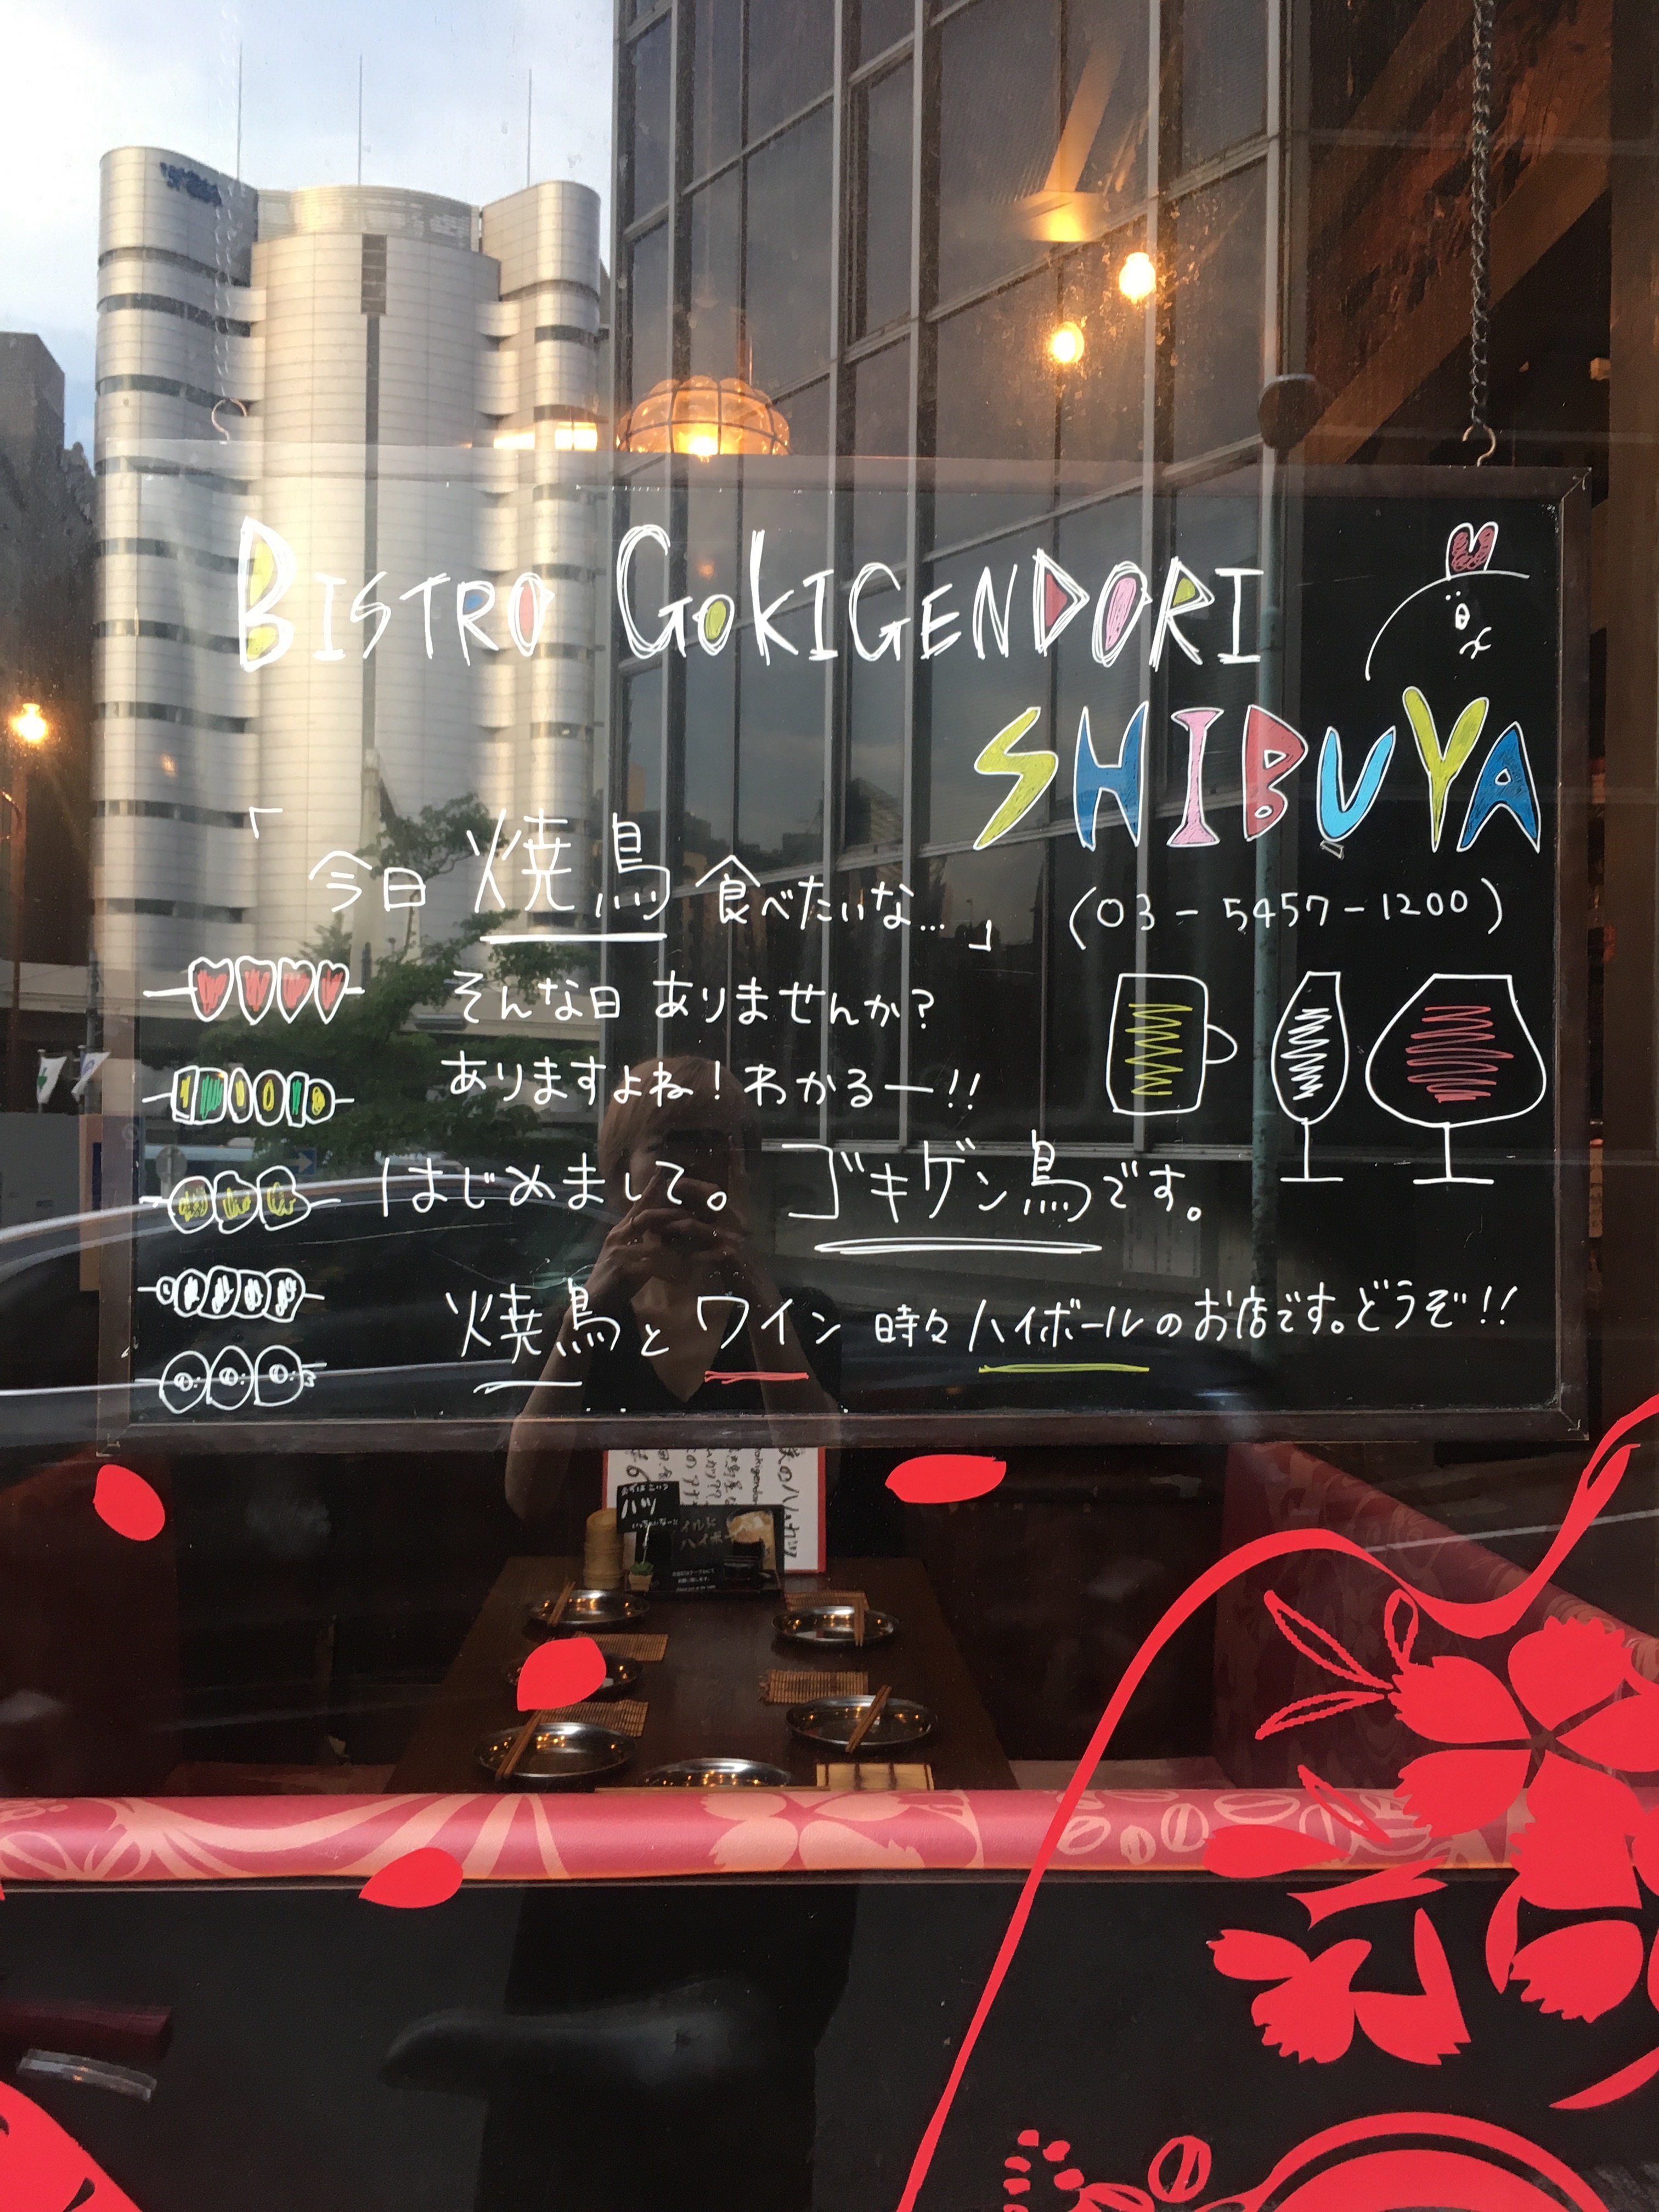 BISTRO GOKIGENDORI
SHIBUYA
「今日 焼鳥 食べたいな…」
(03-5457-1200)
そんな日 ありませんか?
ありますよね!わかるー!!
はじめまして。ゴキゲン鳥です。
焼鳥とワイン 時々ハイボールのお店です。どうぞ!!
ハイボー